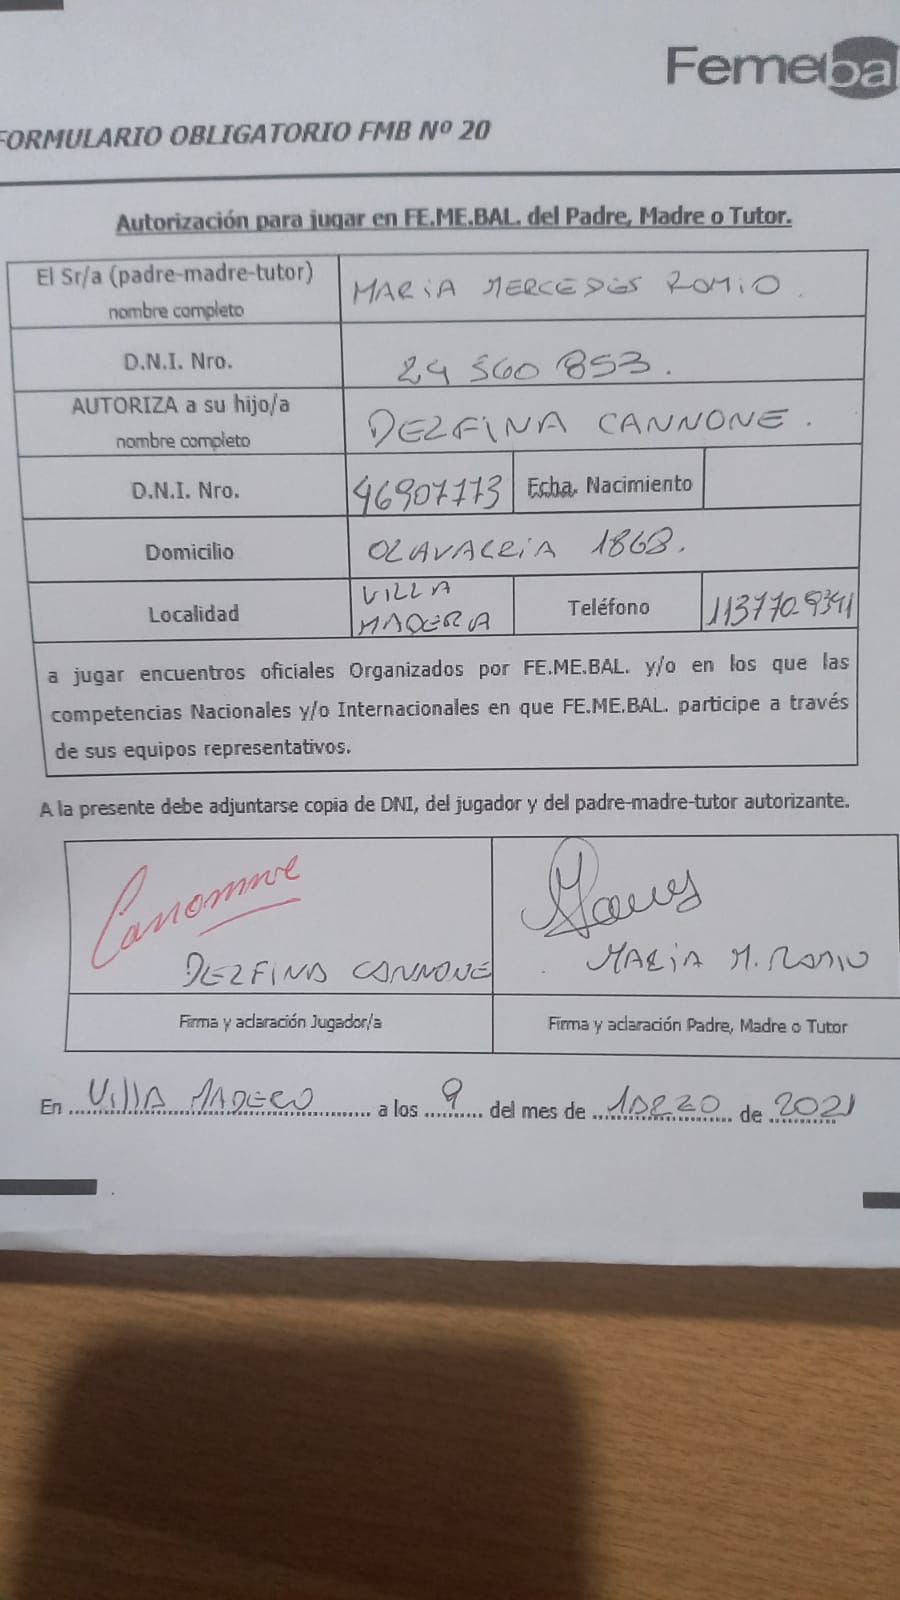 Femebal
FORMULARIO OBLIGATORIO FMB Nº 20
Autorización para jugar en FE.ME.BAL. del Padre, Madre o Tutor.
El Sr/a (padre-madre-tutor) MARIA MERCEDES ROMIO.
nombre completo
D.N.I. Nro. 24 560 853.
AUTORIZA a su hijo/a DELFINA CANNONE.
nombre completo
D.N.I. Nro. 46907773 Fcha. Nacimiento
Domicilio OLAVARRIA 1868.
Localidad VILLA MADERA Teléfono 1137709341
a jugar encuentros oficiales Organizados por FE.ME.BAL. y/o en los que las
competencias Nacionales y/o Internacionales en que FE.ME.BAL. participe a través
de sus equipos representativos.
A la presente debe adjuntarse copia de DNI, del jugador y del padre-madre-tutor autorizante.
Cannone
DELFINA CANNONE MARIA M. ROMIO
Firma y aclaración Jugador/a Firma y aclaración Padre, Madre o Tutor
En VILLA MADERO a los 9 del mes de MARZO de 2021